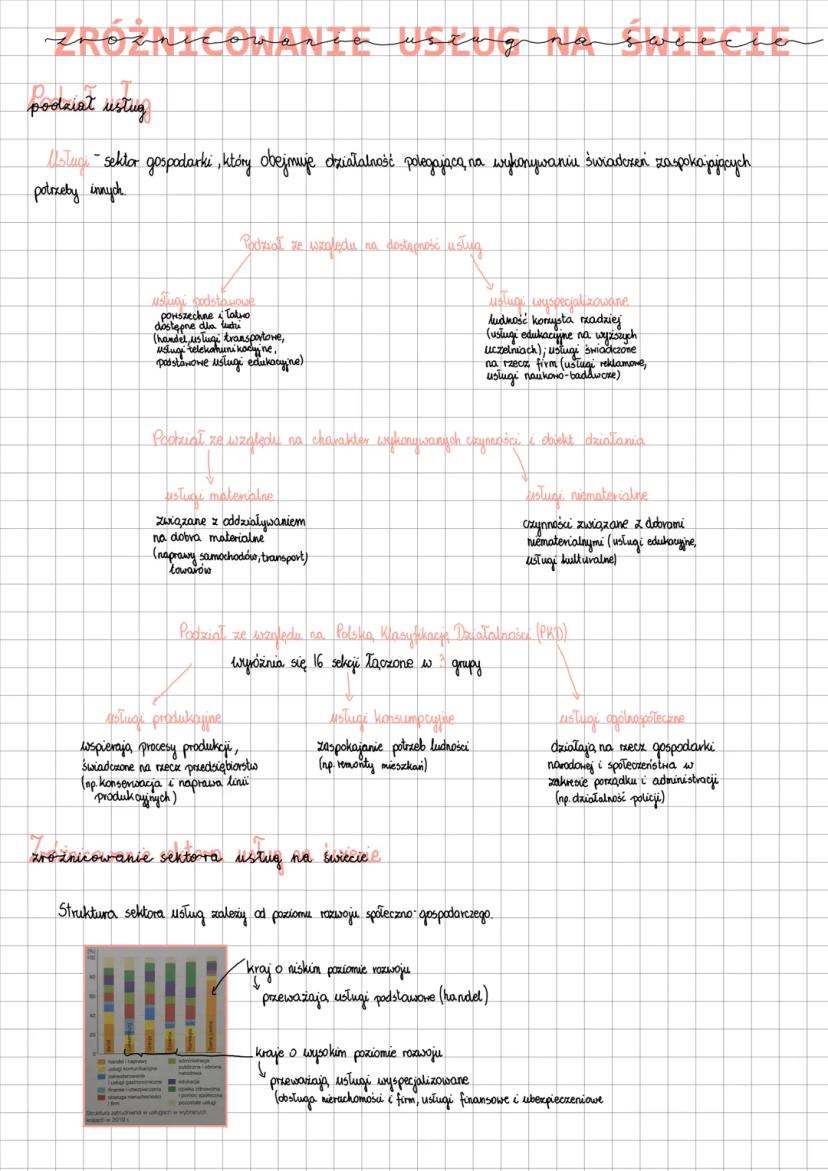 ZRÓŻNICOWANIE USŁUG NA ŚWIECIE
podział usług
Usługi - sektor gospodarki, który obejmuje działalność polegającą na wykonywaniu świadczeń zaspokajających
potrzeby innych.
Podział ze względu na dostępność usług
usługi podstawowe
powszechne i łatwo
dostępne dla ludzi
(handel, usługi transportowe,
usługi telekomunikacyjne,
podstawowe usługi edukacyjne)
usługi wyspecjalizowane
ludność korzysta rzadziej
(usługi edukacyjne na wyższych
uczelniach); usługi świadczone
na rzecz firm (usługi reklamowe,
usługi naukowo-badawcze)
Podział ze względu na charakter wykonywanych czynności i obiekt działania
usługi materialne
związane z oddziaływaniem
na dobra materialne
(naprawy samochodów, transport)
towarów
usługi niematerialne
czynności związane z dobrami
niematerialnymi (usługi edukacyjne,
usługi kulturalne)
Podział ze względu na Polską Klasyfikację Działalności (PKD)
wyróżnia się 16 sekcji łączone w 3 grupy
usługi produkcyjne
wspierają procesy produkcji,
świadczone na rzecz przedsiębiorstw
(np. konserwacja i naprawa linii
produkcyjnych)
usługi konsumpcyjne
zaspokajanie potrzeb ludności
(np. remonty mieszkań)
usługi ogólnospołeczne
działają na rzecz gospodarki
narodowej i społeczeństwa w
zakresie porządku i administracji
(np. działalność policji)
zróżnicowanie sektora usług na świecie
Struktura sektora usług zależy od poziomu rozwoju społeczno-gospodarczego.
[%]
100
80
60
40
20
0
handel i naprawy
usługi komunikacyjne
zakwaterowanie
i usługi gastronomiczne
finanse i ubezpieczenia
obsługa nieruchomości
i firm
administracja
publiczna i obrona
narodowa
edukacja
opieka zdrowotna
i pomoc społeczna
pozostałe usługi
Struktura zatrudnienia w usługach w wybranych
krajach w 2019 r.
kraj o niskim poziomie rozwoju
przeważają usługi podstawowe (handel)
kraje o wysokim poziomie rozwoju
przeważają usługi wyspecjalizowane
(obsługa nieruchomości i firm, usługi finansowe i ubezpieczeniowe